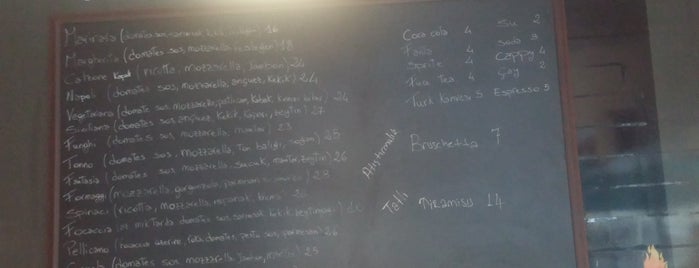 Marinara (domates sos, sarımsak, kekik, 16
Margherita (domates sos, mozzarella, fesleğen) 18
Calzone kapalı (ricotta, mozzarella, jambon) 24
Napoli (domates sos, mozzarella, ançuez, kekik) 24
Vegetariana (domates sos, mozzarella, patlıcan, kabak, kırmızı biber) 24
Siciliana (domates sos, ançuez, kekik, kapari, zeytin) 27
Funghi (domates sos, mozzarella, mantar) 23
Tonno (domates sos, mozzarella, ton balığı, soğan) 25
Fantasia (domates sos, mozzarella, sucuk, mantar, zeytin) 26
Formaggi (mozzarella, gorgonzola, parmesan 28
Spinaci (ricotta, mozzarella, ıspanak, 26
Focaccia (az miktarda domates sos, sarımsak, kekik,
Pellicano (focaccia üzerine, roka, domates, pesto sos, parmesan) 26
(domates sos, mozzarella, 25
Coca cola 4 Su 2
Fanta 4 Soda 3
Sprite 4 Cappy 4
Fuse Tea 4 Çay 2
Türk Kahvesi 5 Espresso 5
Atıştırmalık
Bruschetta 7
Tatlı
Tiramisu 14